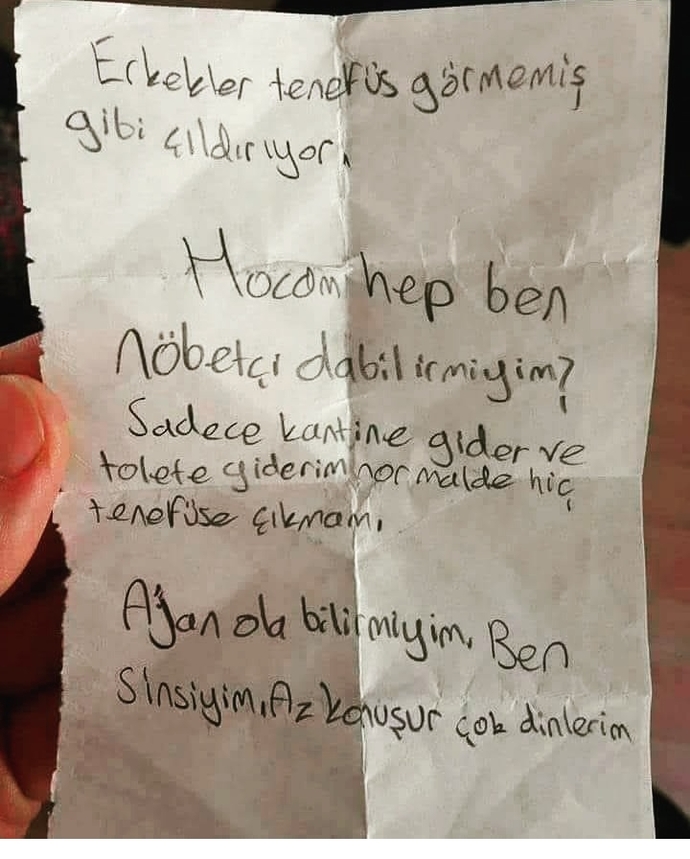 Erkekler tenefüs görmemiş
gibi çıldırıyor.
Hocam hep ben
nöbetçi olabilirmiyim?
Sadece kantine gider ve
tolete giderim normalde hiç
tenefüse çıkmam.
Ajan ola bilirmiyim. Ben
sinsiyim. Az konuşur çok dinlerim